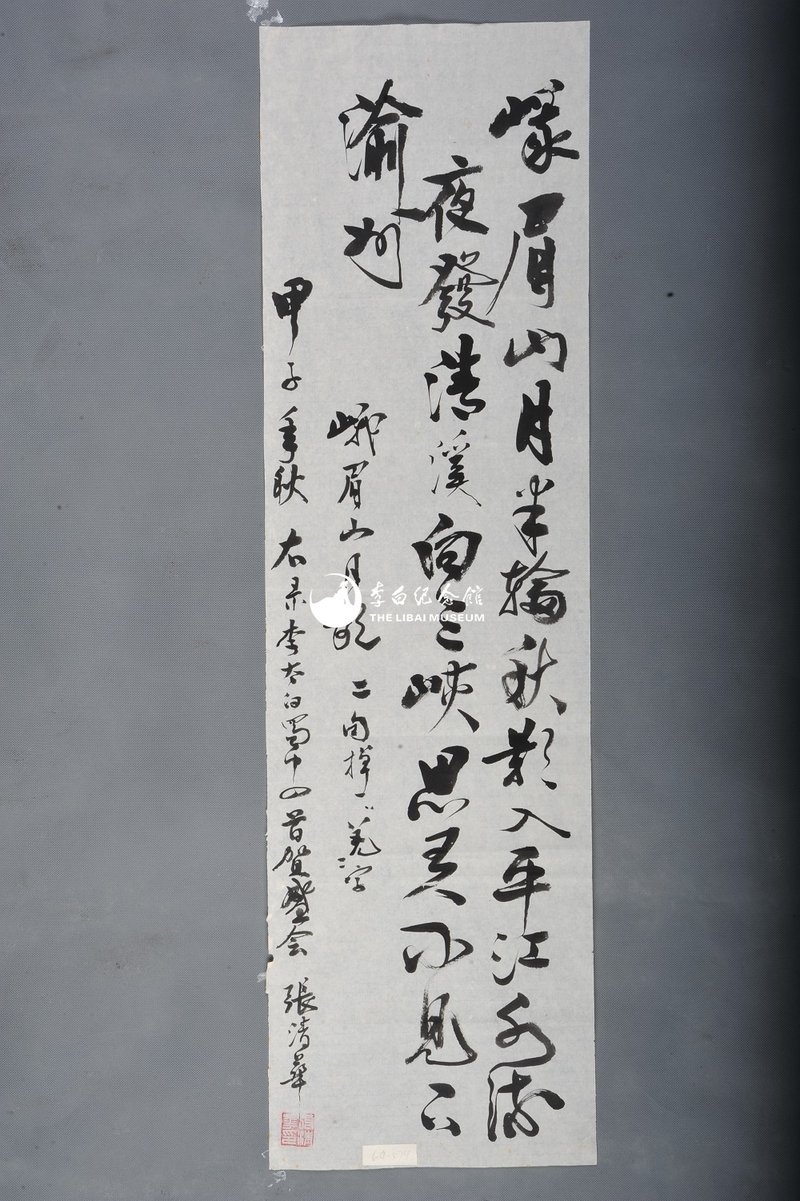 峨眉山月半輪秋影入平江水流
夜發清溪向三峽思君不見下
渝州
峨眉山月歌 二句掉一羌字
甲子年秋 右录李太白蜀中四首賀盛会 張清華
李白纪念館
THE LIBAI MUSEUM